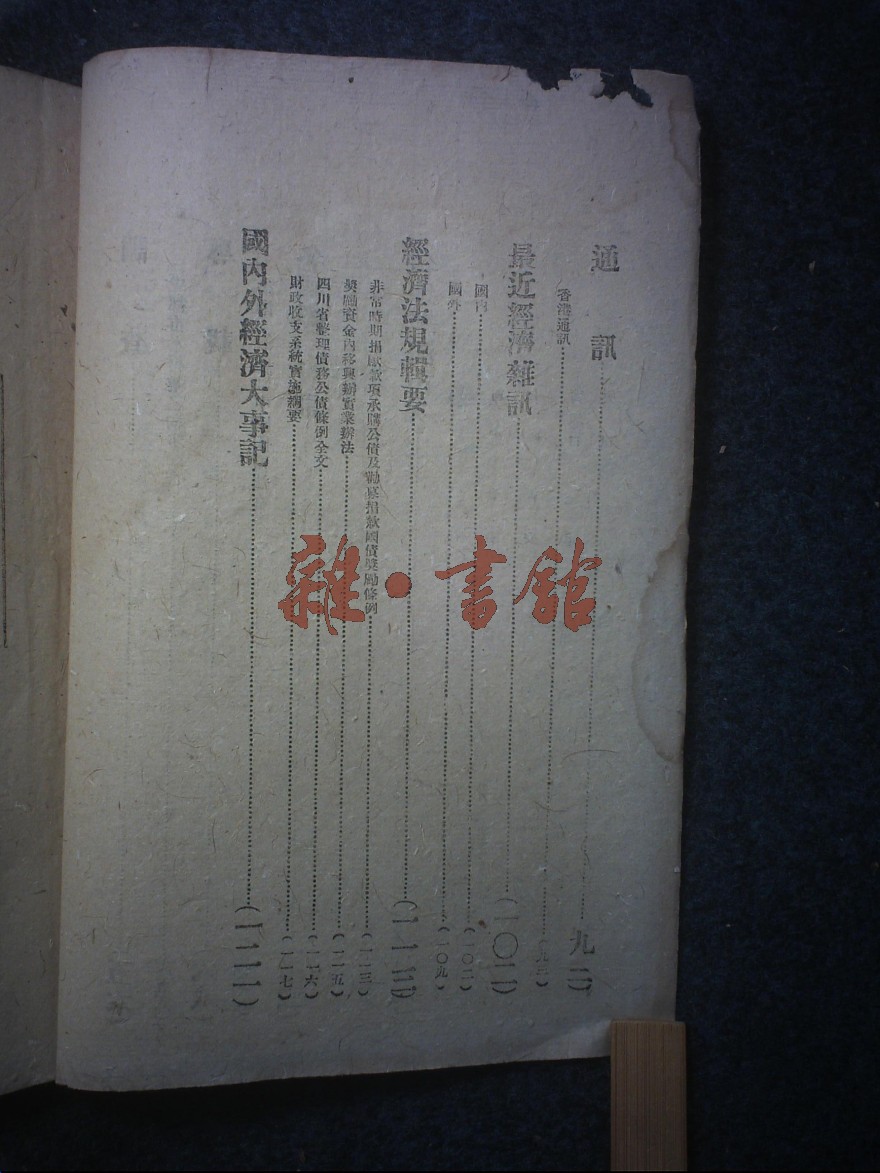 通訊……九二)
香港通訊……(九三)
最近經濟雜訊……(一〇二)
國內……(一〇二)
國外……(一〇九)
經濟法規輯要……(一一三)
非常時期捐獻款項承購公債及勸募捐款國債獎勵條例……(一一三)
獎勵資金內移興辦實業辦法……(一一五)
四川省整理債務公債條例全文……(一一六)
財政收支系統實施綱要……(一一七)
國內外經濟大事記……(一二一)
雜·書館